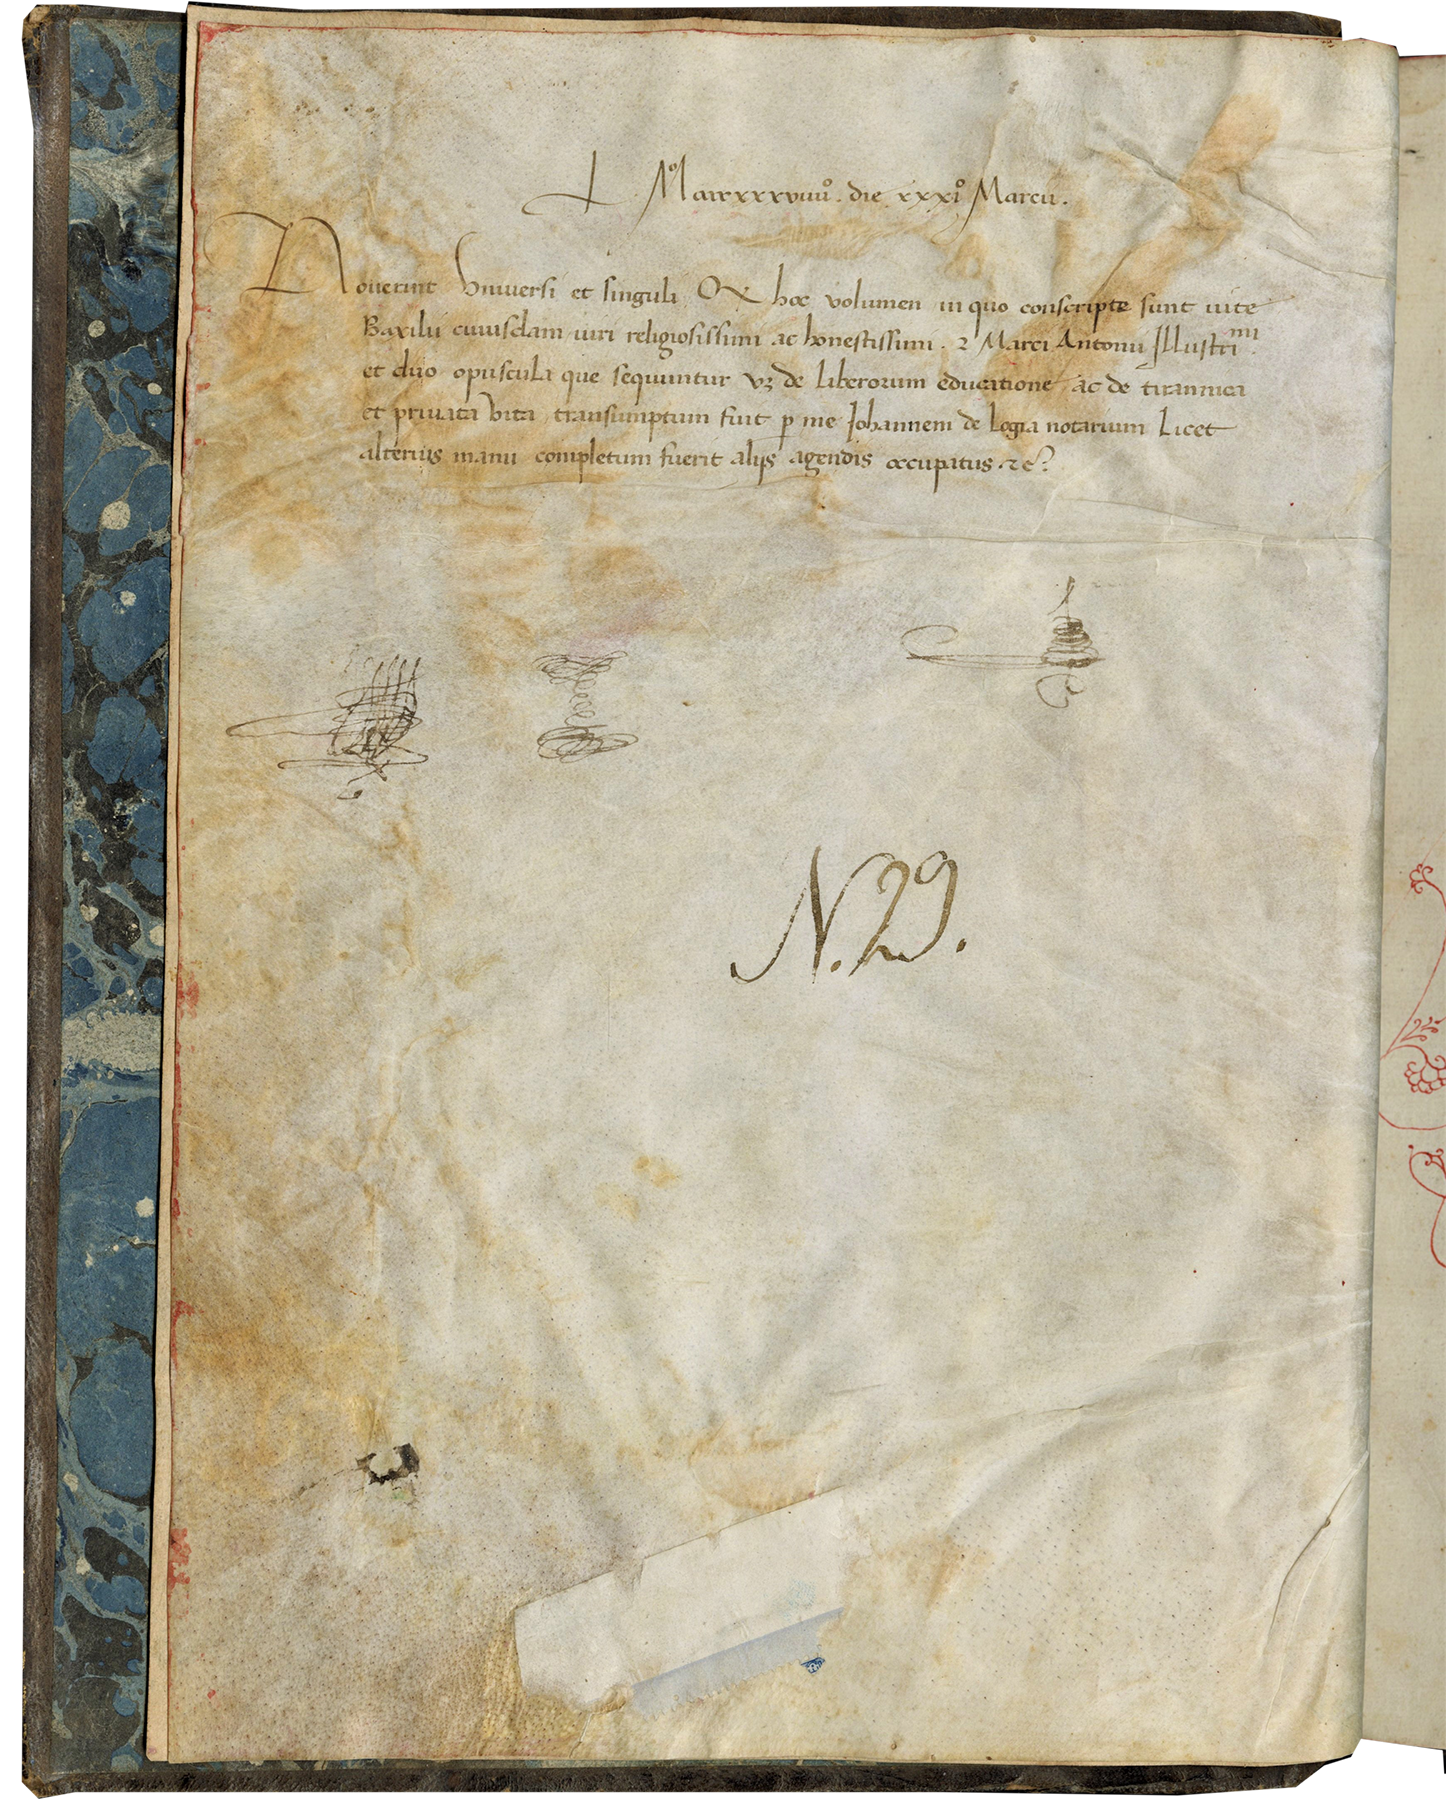 Mº cccc xxxxviiiiº. die xxxiº Marcii.
Noverint Universi et singuli Qx hoc volumen in quo conscripte sunt vite
Baxilii cuiusdam viri religiosissimi ac honestissimi. 2 Marci Antonii Illustri mi.
et duo opuscula que sequuntur vz de liberorum educatione ac de tirannica
et privata vita, transumptum fuit p me Johannem de logia notarium Licet
alterius manu completum fuerit alijs agendis occupatus. 2c?
N. 29.